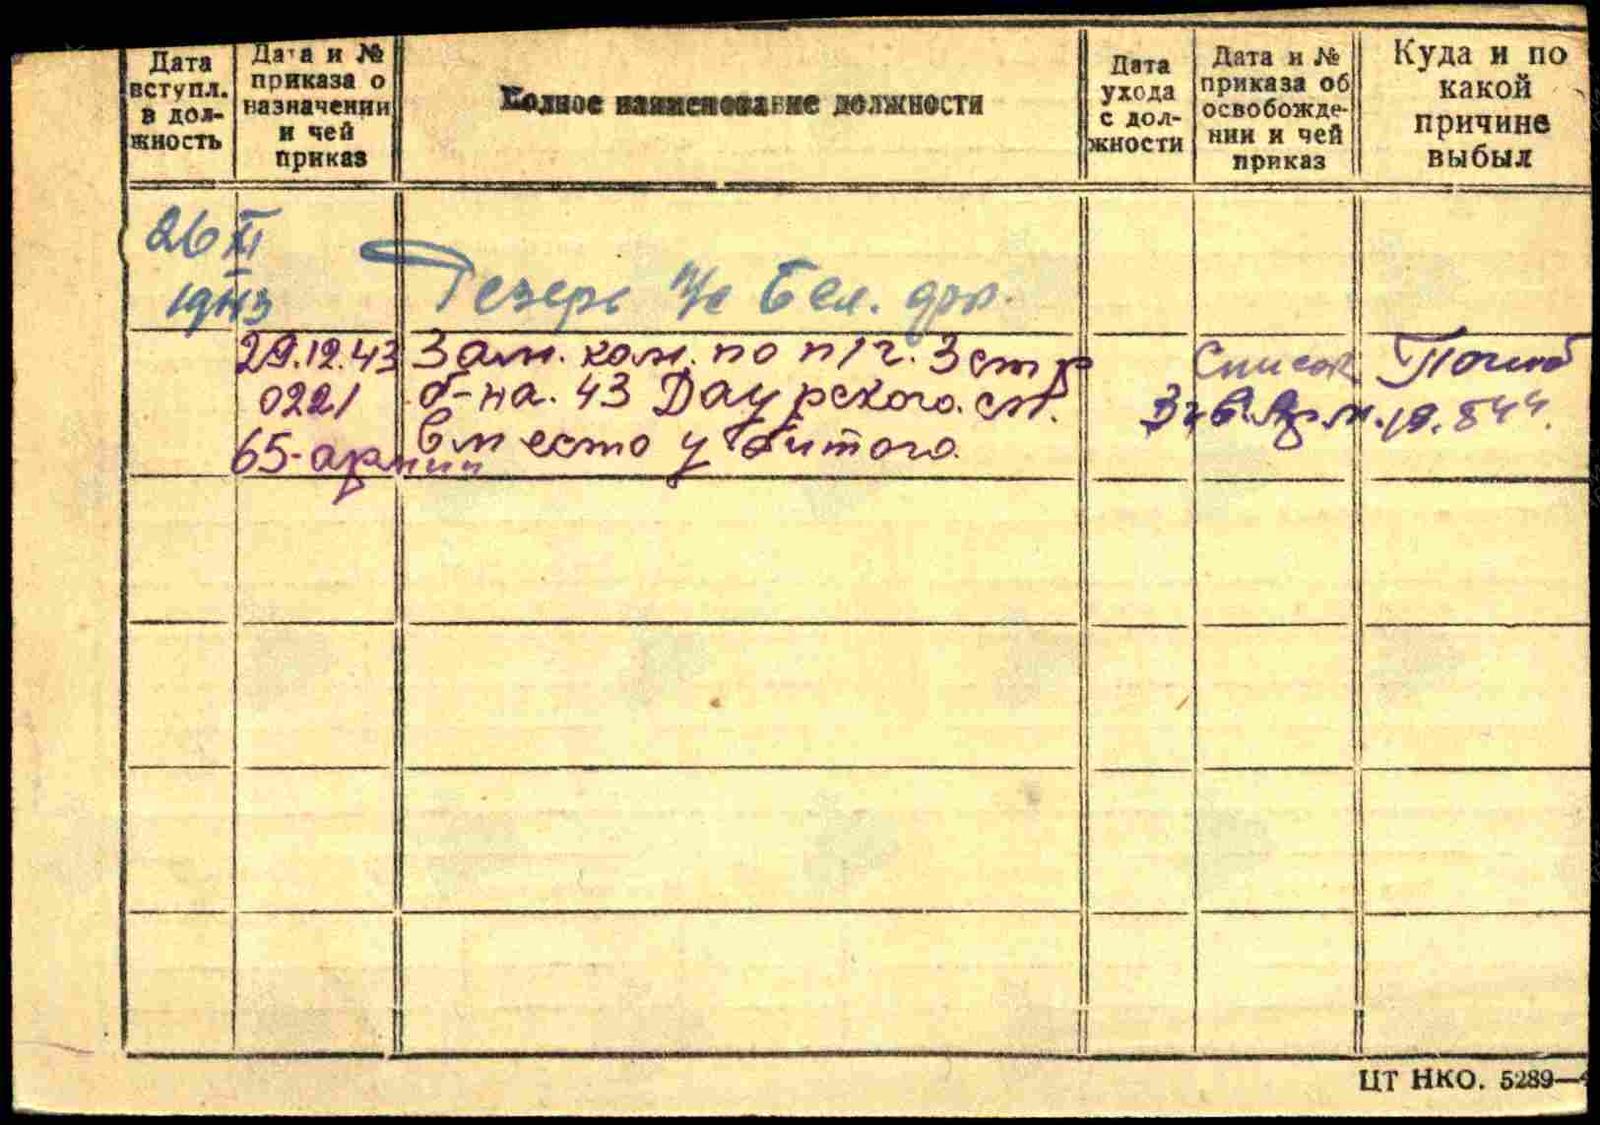 Дата
вступл.
в дол-
жность
Дата и №
приказа о
назначении
и чей
приказ
Полное наименование должности
Дата
ухода
с дол-
жности
Дата и №
приказа об
освобожде-
нии и чей
приказ
Куда и по
какой
причине
выбыл
26 XI
1943
Резерв п/с Бел. фр.
29.12.43
0221
65-армии
Зам. ком. по п/ч. 3 стр
б-на. 43 Даурского. сп.
вместо убитого.
Список
3 гв. Арм.
Погиб
19.8 44.
ЦТ НКО. 5289—